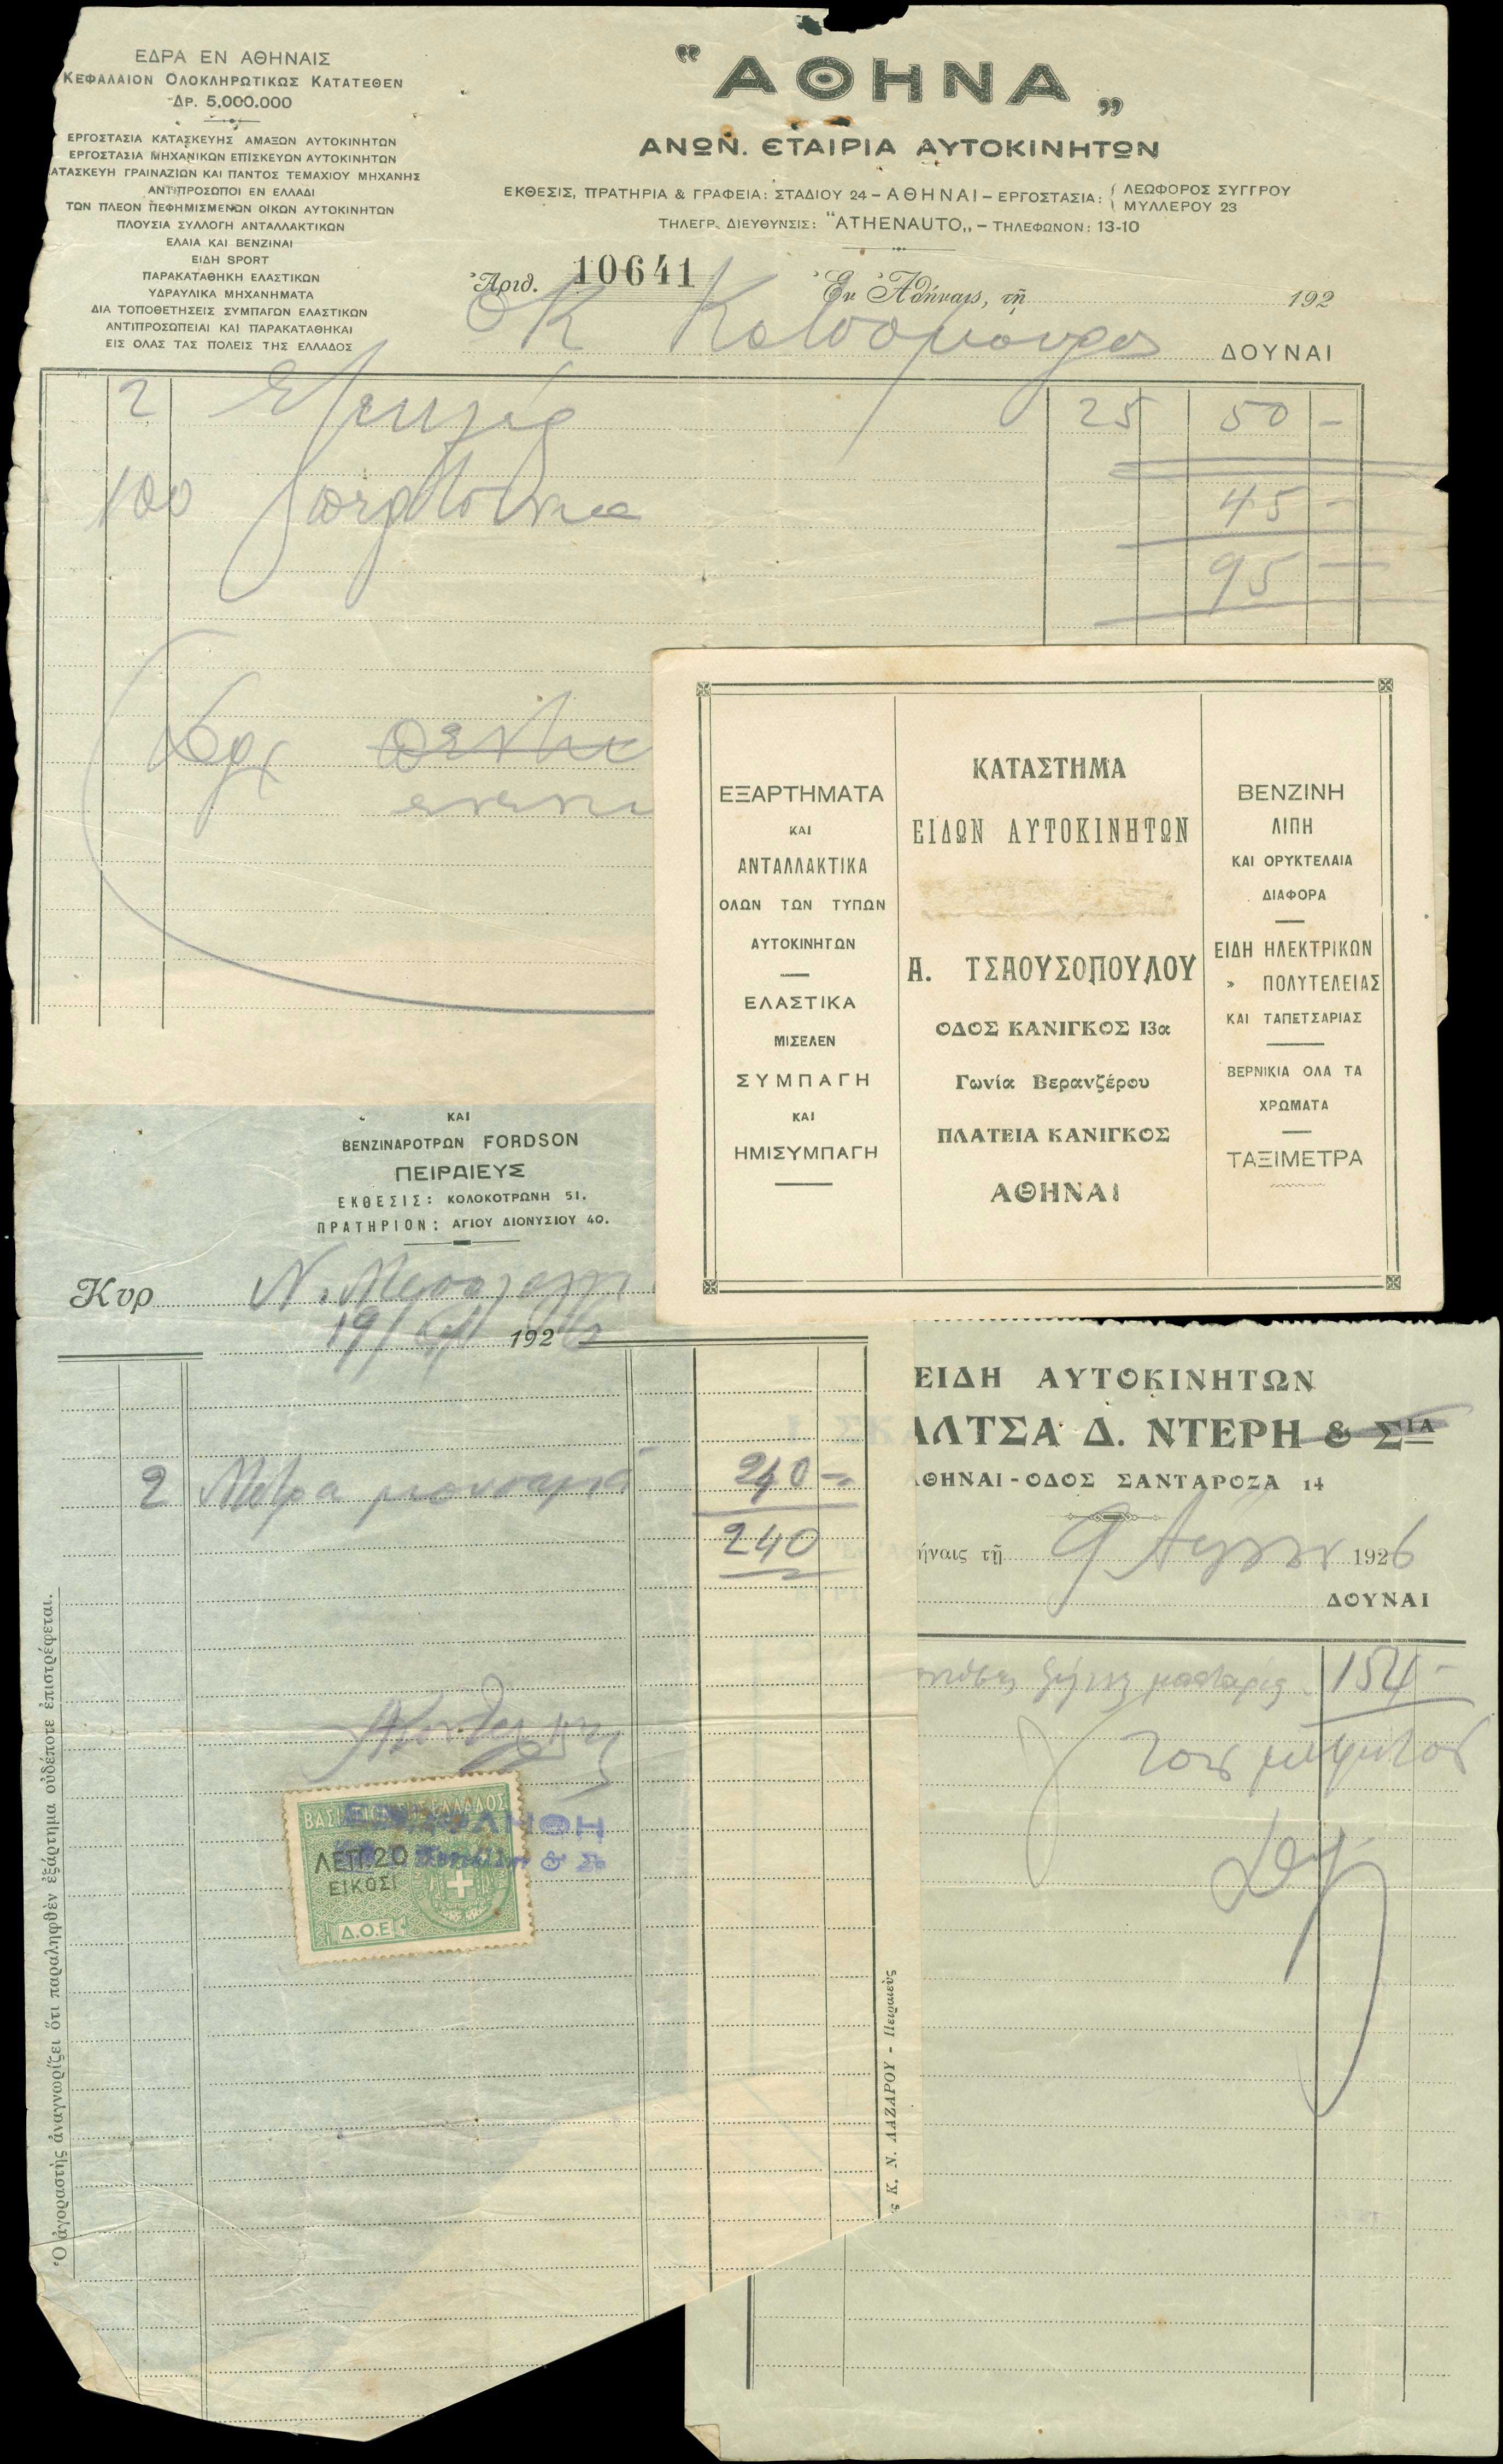 ΕΔΡΑ ΕΝ ΑΘΗΝΑΙΣ
ΚΕΦΑΛΑΙΟΝ ΟΛΟΚΛΗΡΩΤΙΚΩΣ ΚΑΤΑΤΕΘΕΝ
ΔΡ. 5.000.000
ΕΡΓΟΣΤΑΣΙΑ ΚΑΤΑΣΚΕΥΗΣ ΑΜΑΞΩΝ ΑΥΤΟΚΙΝΗΤΩΝ
ΕΡΓΟΣΤΑΣΙΑ ΜΗΧΑΝΙΚΩΝ ΕΠΙΣΚΕΥΩΝ ΑΥΤΟΚΙΝΗΤΩΝ
ΑΤΑΣΚΕΥΗ ΓΡΑΙΝΑΖΙΩΝ ΚΑΙ ΠΑΝΤΟΣ ΤΕΜΑΧΙΟΥ ΜΗΧΑΝΗΣ
ΑΝΤΙΠΡΟΣΩΠΟΙ ΕΝ ΕΛΛΑΔΙ
ΤΩΝ ΠΛΕΟΝ ΠΕΦΗΜΙΣΜΕΝΩΝ ΟΙΚΩΝ ΑΥΤΟΚΙΝΗΤΩΝ
ΠΛΟΥΣΙΑ ΣΥΛΛΟΓΗ ΑΝΤΑΛΛΑΚΤΙΚΩΝ
ΕΛΑΙΑ ΚΑΙ ΒΕΝΖΙΝΑΙ
ΕΙΔΗ SPORT
ΠΑΡΑΚΑΤΑΘΗΚΗ ΕΛΑΣΤΙΚΩΝ
ΥΔΡΑΥΛΙΚΑ ΜΗΧΑΝΗΜΑΤΑ
ΔΙΑ ΤΟΠΟΘΕΤΗΣΕΙΣ ΣΥΜΠΑΓΩΝ ΕΛΑΣΤΙΚΩΝ
ΑΝΤΙΠΡΟΣΩΠΕΙΑΙ ΚΑΙ ΠΑΡΑΚΑΤΑΘΗΚΑΙ
ΕΙΣ ΟΛΑΣ ΤΑΣ ΠΟΛΕΙΣ ΤΗΣ ΕΛΛΑΔΟΣ
"ΑΘΗΝΑ„
ΑΝΩΝ. ΕΤΑΙΡΙΑ ΑΥΤΟΚΙΝΗΤΩΝ
ΕΚΘΕΣΙΣ, ΠΡΑΤΗΡΙΑ & ΓΡΑΦΕΙΑ: ΣΤΑΔΙΟΥ 24 – ΑΘΗΝΑΙ – ΕΡΓΟΣΤΑΣΙΑ: ΛΕΩΦΟΡΟΣ ΣΥΓΓΡΟΥ
ΜΥΛΛΕΡΟΥ 23
ΤΗΛΕΓΡ. ΔΙΕΥΘΥΝΣΙΣ: "ATHENAUTO„ – ΤΗΛΕΦΩΝΟΝ: 13-10
Ἀριθ. 10641 Ἐν Ἀθήναις, τῇ 192
ΔΟΥΝΑΙ
2 25 50 –
100 45 –
95 –
ΕΞΑΡΤΗΜΑΤΑ
ΚΑΙ
ΑΝΤΑΛΛΑΚΤΙΚΑ
ΟΛΩΝ ΤΩΝ ΤΥΠΩΝ
ΑΥΤΟΚΙΝΗΤΩΝ
ΕΛΑΣΤΙΚΑ
ΜΙΣΕΛΕΝ
ΣΥΜΠΑΓΗ
ΚΑΙ
ΗΜΙΣΥΜΠΑΓΗ
ΚΑΤΑΣΤΗΜΑ
ΕΙΔΩΝ ΑΥΤΟΚΙΝΗΤΩΝ
Α. ΤΣΑΟΥΣΟΠΟΥΛΟΥ
ΟΔΟΣ ΚΑΝΙΓΚΟΣ 13α
Γωνία Βερανζέρου
ΠΛΑΤΕΙΑ ΚΑΝΙΓΚΟΣ
ΑΘΗΝΑΙ
ΒΕΝΖΙΝΗ
ΛΙΠΗ
ΚΑΙ ΟΡΥΚΤΕΛΑΙΑ
ΔΙΑΦΟΡΑ
ΕΙΔΗ ΗΛΕΚΤΡΙΚΩΝ
» ΠΟΛΥΤΕΛΕΙΑΣ
ΚΑΙ ΤΑΠΕΤΣΑΡΙΑΣ
ΒΕΡΝΙΚΙΑ ΟΛΑ ΤΑ
ΧΡΩΜΑΤΑ
ΤΑΞΙΜΕΤΡΑ
ΚΑΙ
ΒΕΝΖΙΝΑΡΟΤΡΩΝ FORDSON
ΠΕΙΡΑΙΕΥΣ
ΕΚΘΕΣΙΣ: ΚΟΛΟΚΟΤΡΩΝΗ 51.
ΠΡΑΤΗΡΙΟΝ: ΑΓΙΟΥ ΔΙΟΝΥΣΙΟΥ 40.
Κυρ
192
2 Μέτρα μουσαμά 240 –
240
ΒΑΣΙΛΕΙΟΝ ΤΗΣ ΕΛΛΑΔΟΣ
ΛΕΠ. 20
ΕΙΚΟΣΙ
Δ.Ο.Ε
Ὁ ἀγοραστὴς ἀναγνωρίζει ὅτι παραληφθὲν ἐξάρτημα οὐδέποτε ἐπιστρέφεται.
ς Κ. Ν. ΛΑΖΑΡΟΥ - Πειραιεὺς
ΕΙΔΗ ΑΥΤΟΚΙΝΗΤΩΝ
ΑΛΤΣΑ Δ. ΝΤΕΡΗ & ΣΙΑ
ΑΘΗΝΑΙ - ΟΔΟΣ ΣΑΝΤΑΡΟΖΑ 14
ήναις τῇ 9 1926
ΔΟΥΝΑΙ
154 –